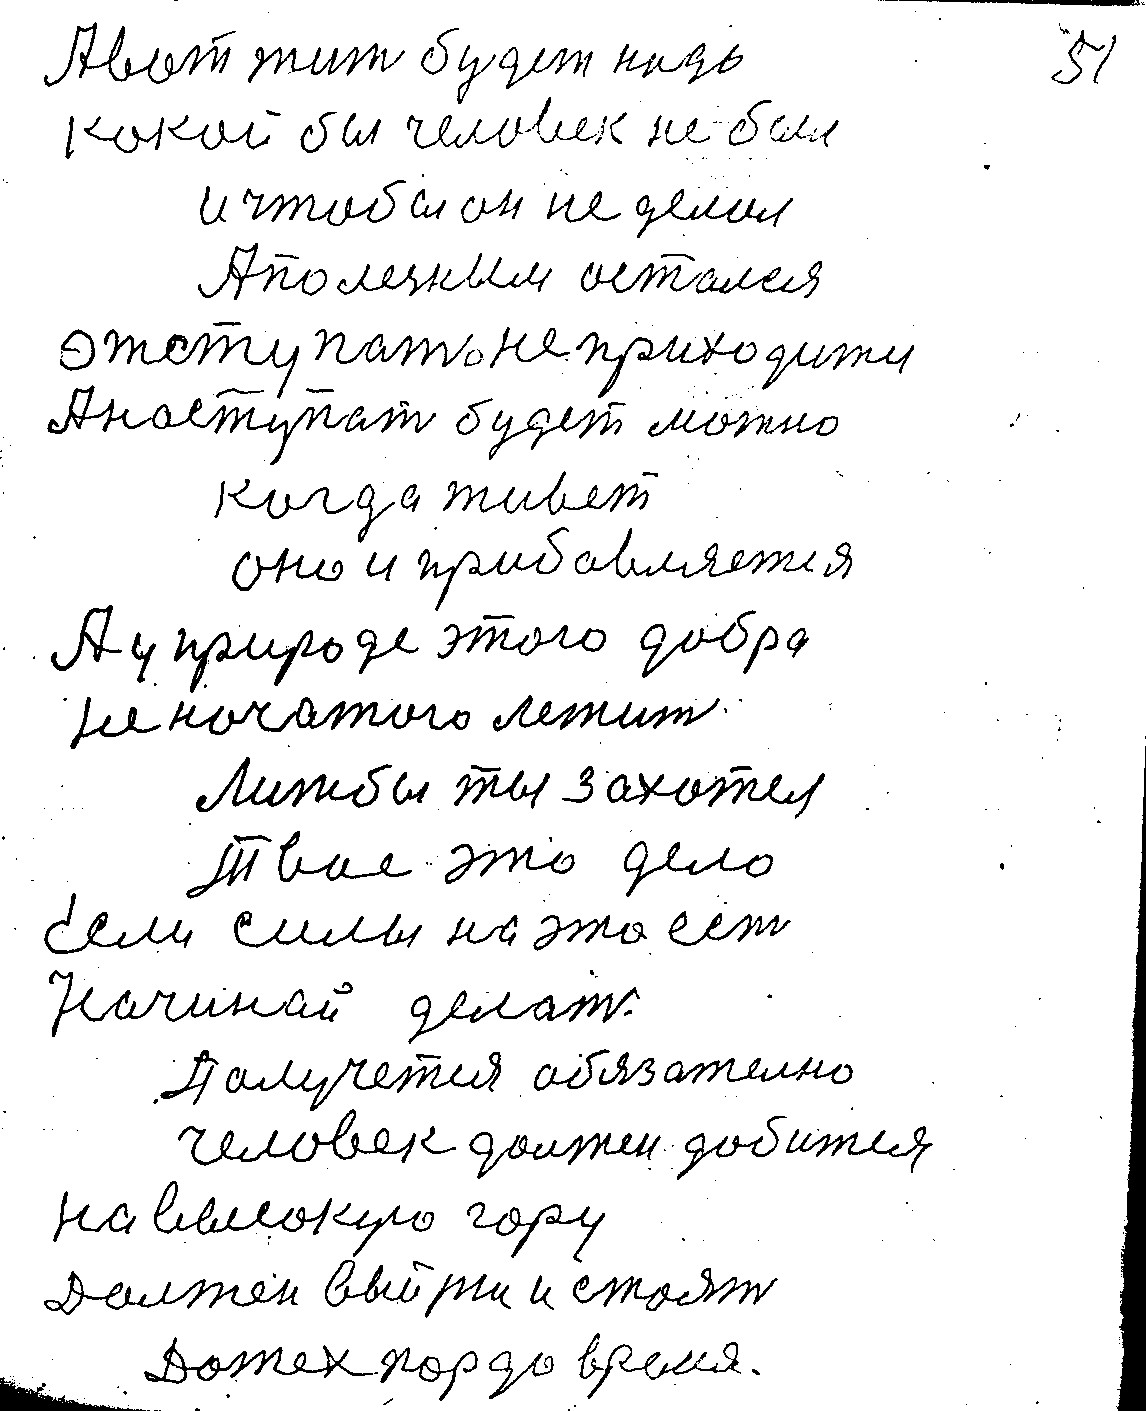 51
Авот жит будет надо
какой бы человек не был
и чтобы он не делал
Аполезным остался
Отступать не приходити
Анаступат будет можно
когда живет
оно и прибавляется
А у природе этого добра
не початого лежит
Лижбы ты захотел
Твое это дело
Если силы на это ест
Начинай делат.
Получется обязателно
человек должен добится
на высокую гору
Должен выйти и стоят
До тех пор до время.